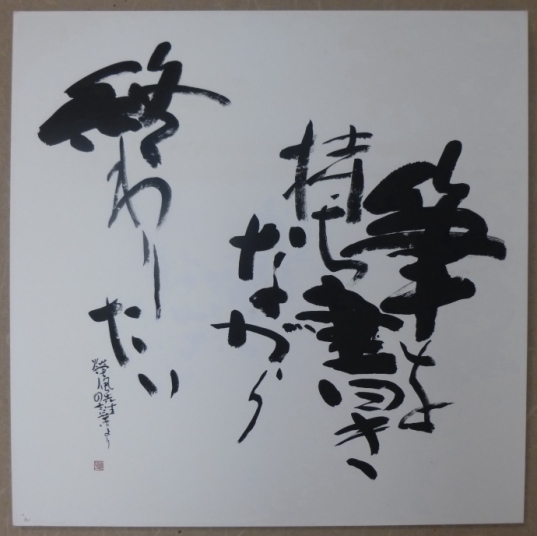 筆を
持ち書き
ながら
終わりたい
先生の言葉より